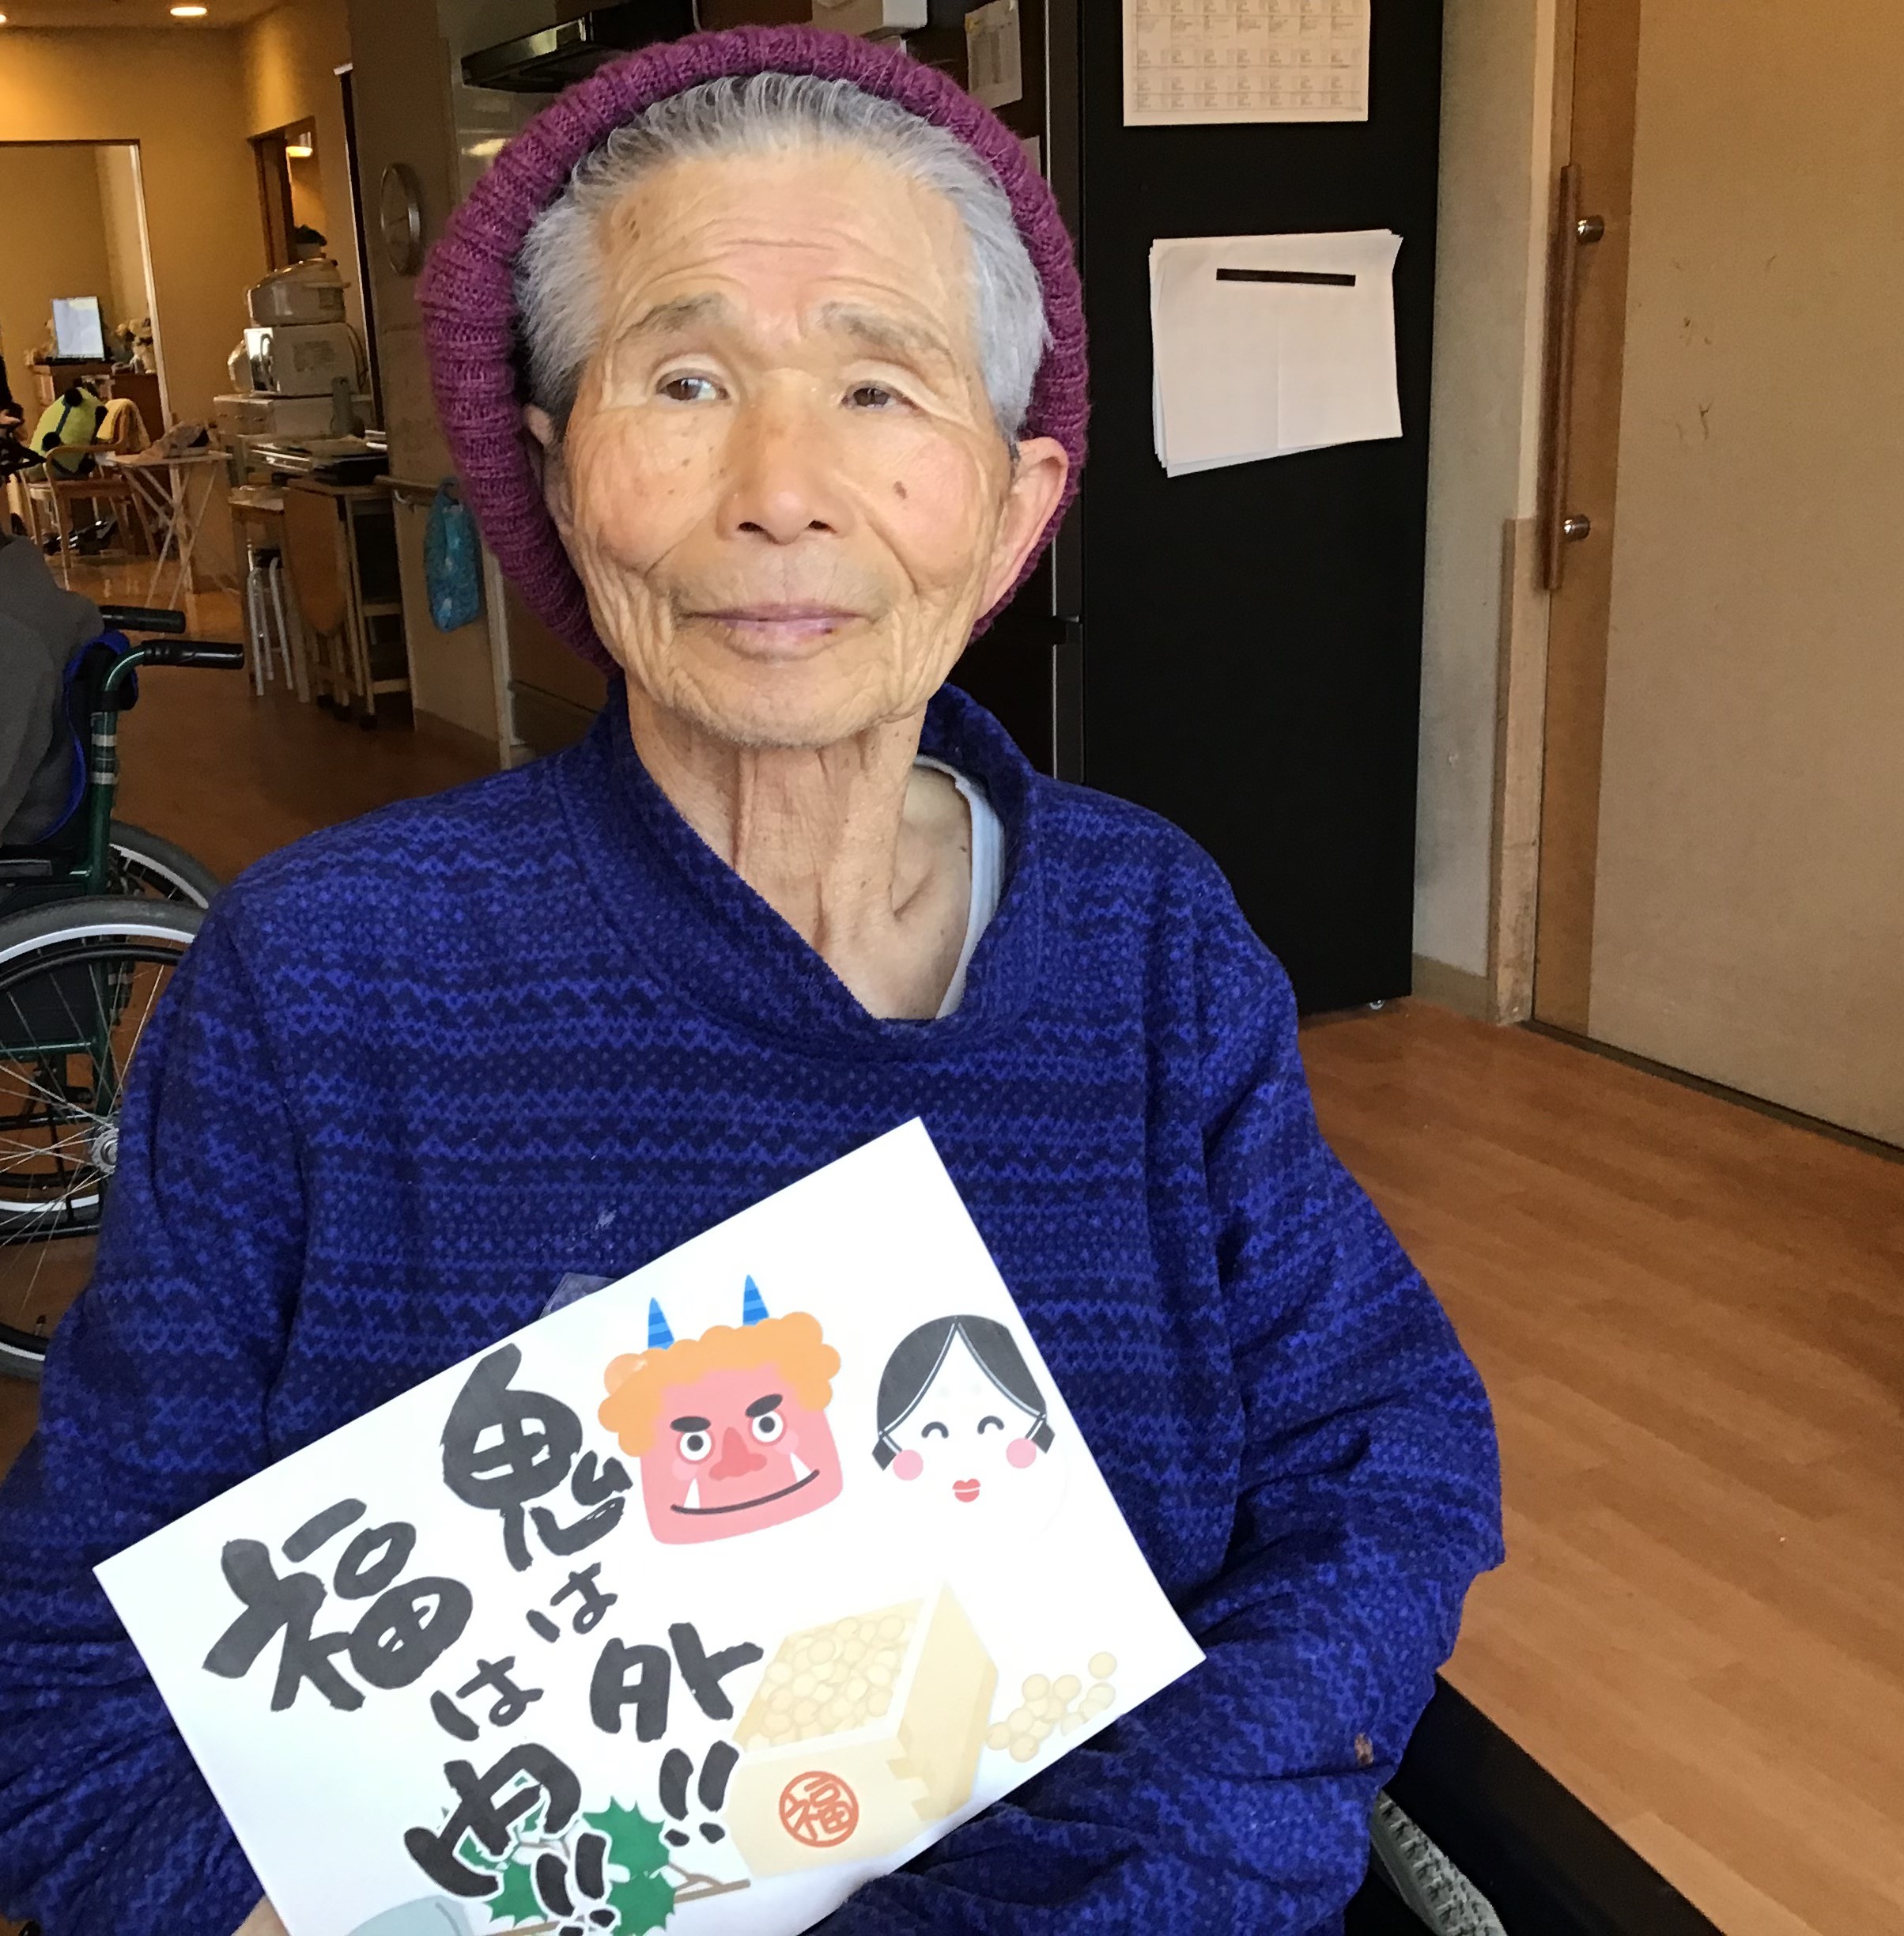 鬼は外!!
福は内!!
福